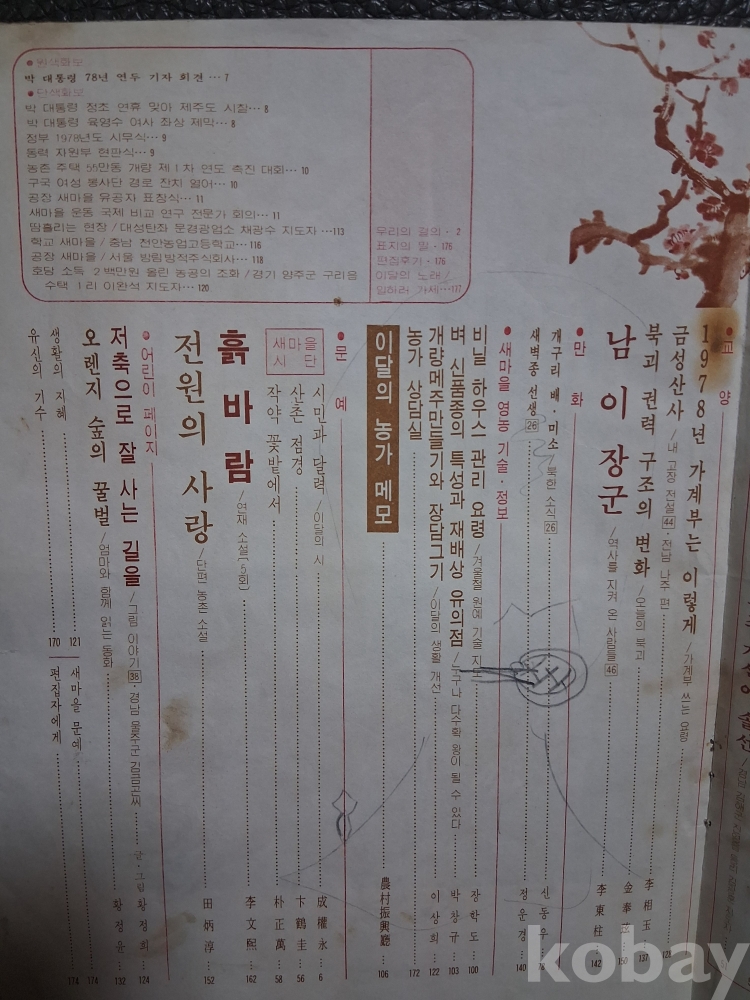 ● 원색화보
박 대통령 78년 연두 기자 회견 … 7
● 단색화보
박 대통령 정초 연휴 맞아 제주도 시찰 … 8
박 대통령 육영수 여사 좌상 제막 … 8
정부 1978년도 시무식 … 9
동력 자원부 현판식 … 9
농촌 주택 55만동 개량 제 1 차 연도 촉진 대회 … 10
구국 여성 봉사단 경로 잔치 열어 … 10
공장 새마을 유공자 표창식 … 11
새마을 운동 국제 비교 연구 전문가 회의 … 11
땀흘리는 현장 / 대성탄좌 문경광업소 채광수 지도자 … 113
학교 새마을 / 충남 천안농업고등학교 … 116
공장 새마을 / 서울 방림방적주식회사 … 118
호당 소득 2 백만원 올린 농공의 조화 / 경기 양주군 구리읍
수택 1 리 이완석 지도자 … 120
우리의 결의 · 2
표지의 말 · 176
편집후기 · 176
이달의 노래 /
입하러 가세 … 177
● 교양
1978년 가계부는 이렇게 / 가계부 쓰는 요령 … 128
금성산사 / 내 고장 전설 44 · 전남 나주 편 … 李相玉 137
북괴 권력 구조의 변화 / 오늘의 북괴 … 金奉 150
남이장군 / 역사를 지켜 온 사람들 46 … 李東柱 142
● 만화
개구리 배 · 미소 / 북한 소식 26 … 신동우
새벽종 선생 26 … 정운경 140
● 새마을 영농 기술 · 정보
비닐 하우스 관리 요령 / 겨울철 원예 기술 지도 … 장학도 100
벼 신품종의 특성과 재배상 유의점 / 누구나 다수확 왕이 될 수 있다 … 박창규 103
개량메주만들기와 장담그기 / 이달의 생활 개선 … 이상희 122
농가 상담실 … 172
이달의 농가 메모 … 農村振興廳 106
● 문예
새마을 시단
시민과 달력 / 이달의 시 … 成權永 6
산촌 점경 … 卞鶴圭 56
작약 꽃밭에서 … 朴正萬 58
흙바람 / 연재 소설 (5회) … 李文熙 162
전원의 사랑 / 단편 농촌 소설 … 田炳淳 152
● 어린이 페이지
저축으로 잘 사는 길을 / 그림 이야기 38 · 경남 울주군 김금곤씨 … 글·그림 황정희 124
오렌지 숲의 꿀벌 / 엄마와 함께 읽는 동화 … 황정윤 132
생활의 지혜 … 121
새마을 문예 … 174
유신의 기수 … 170
편집자에게 … 174
kobay